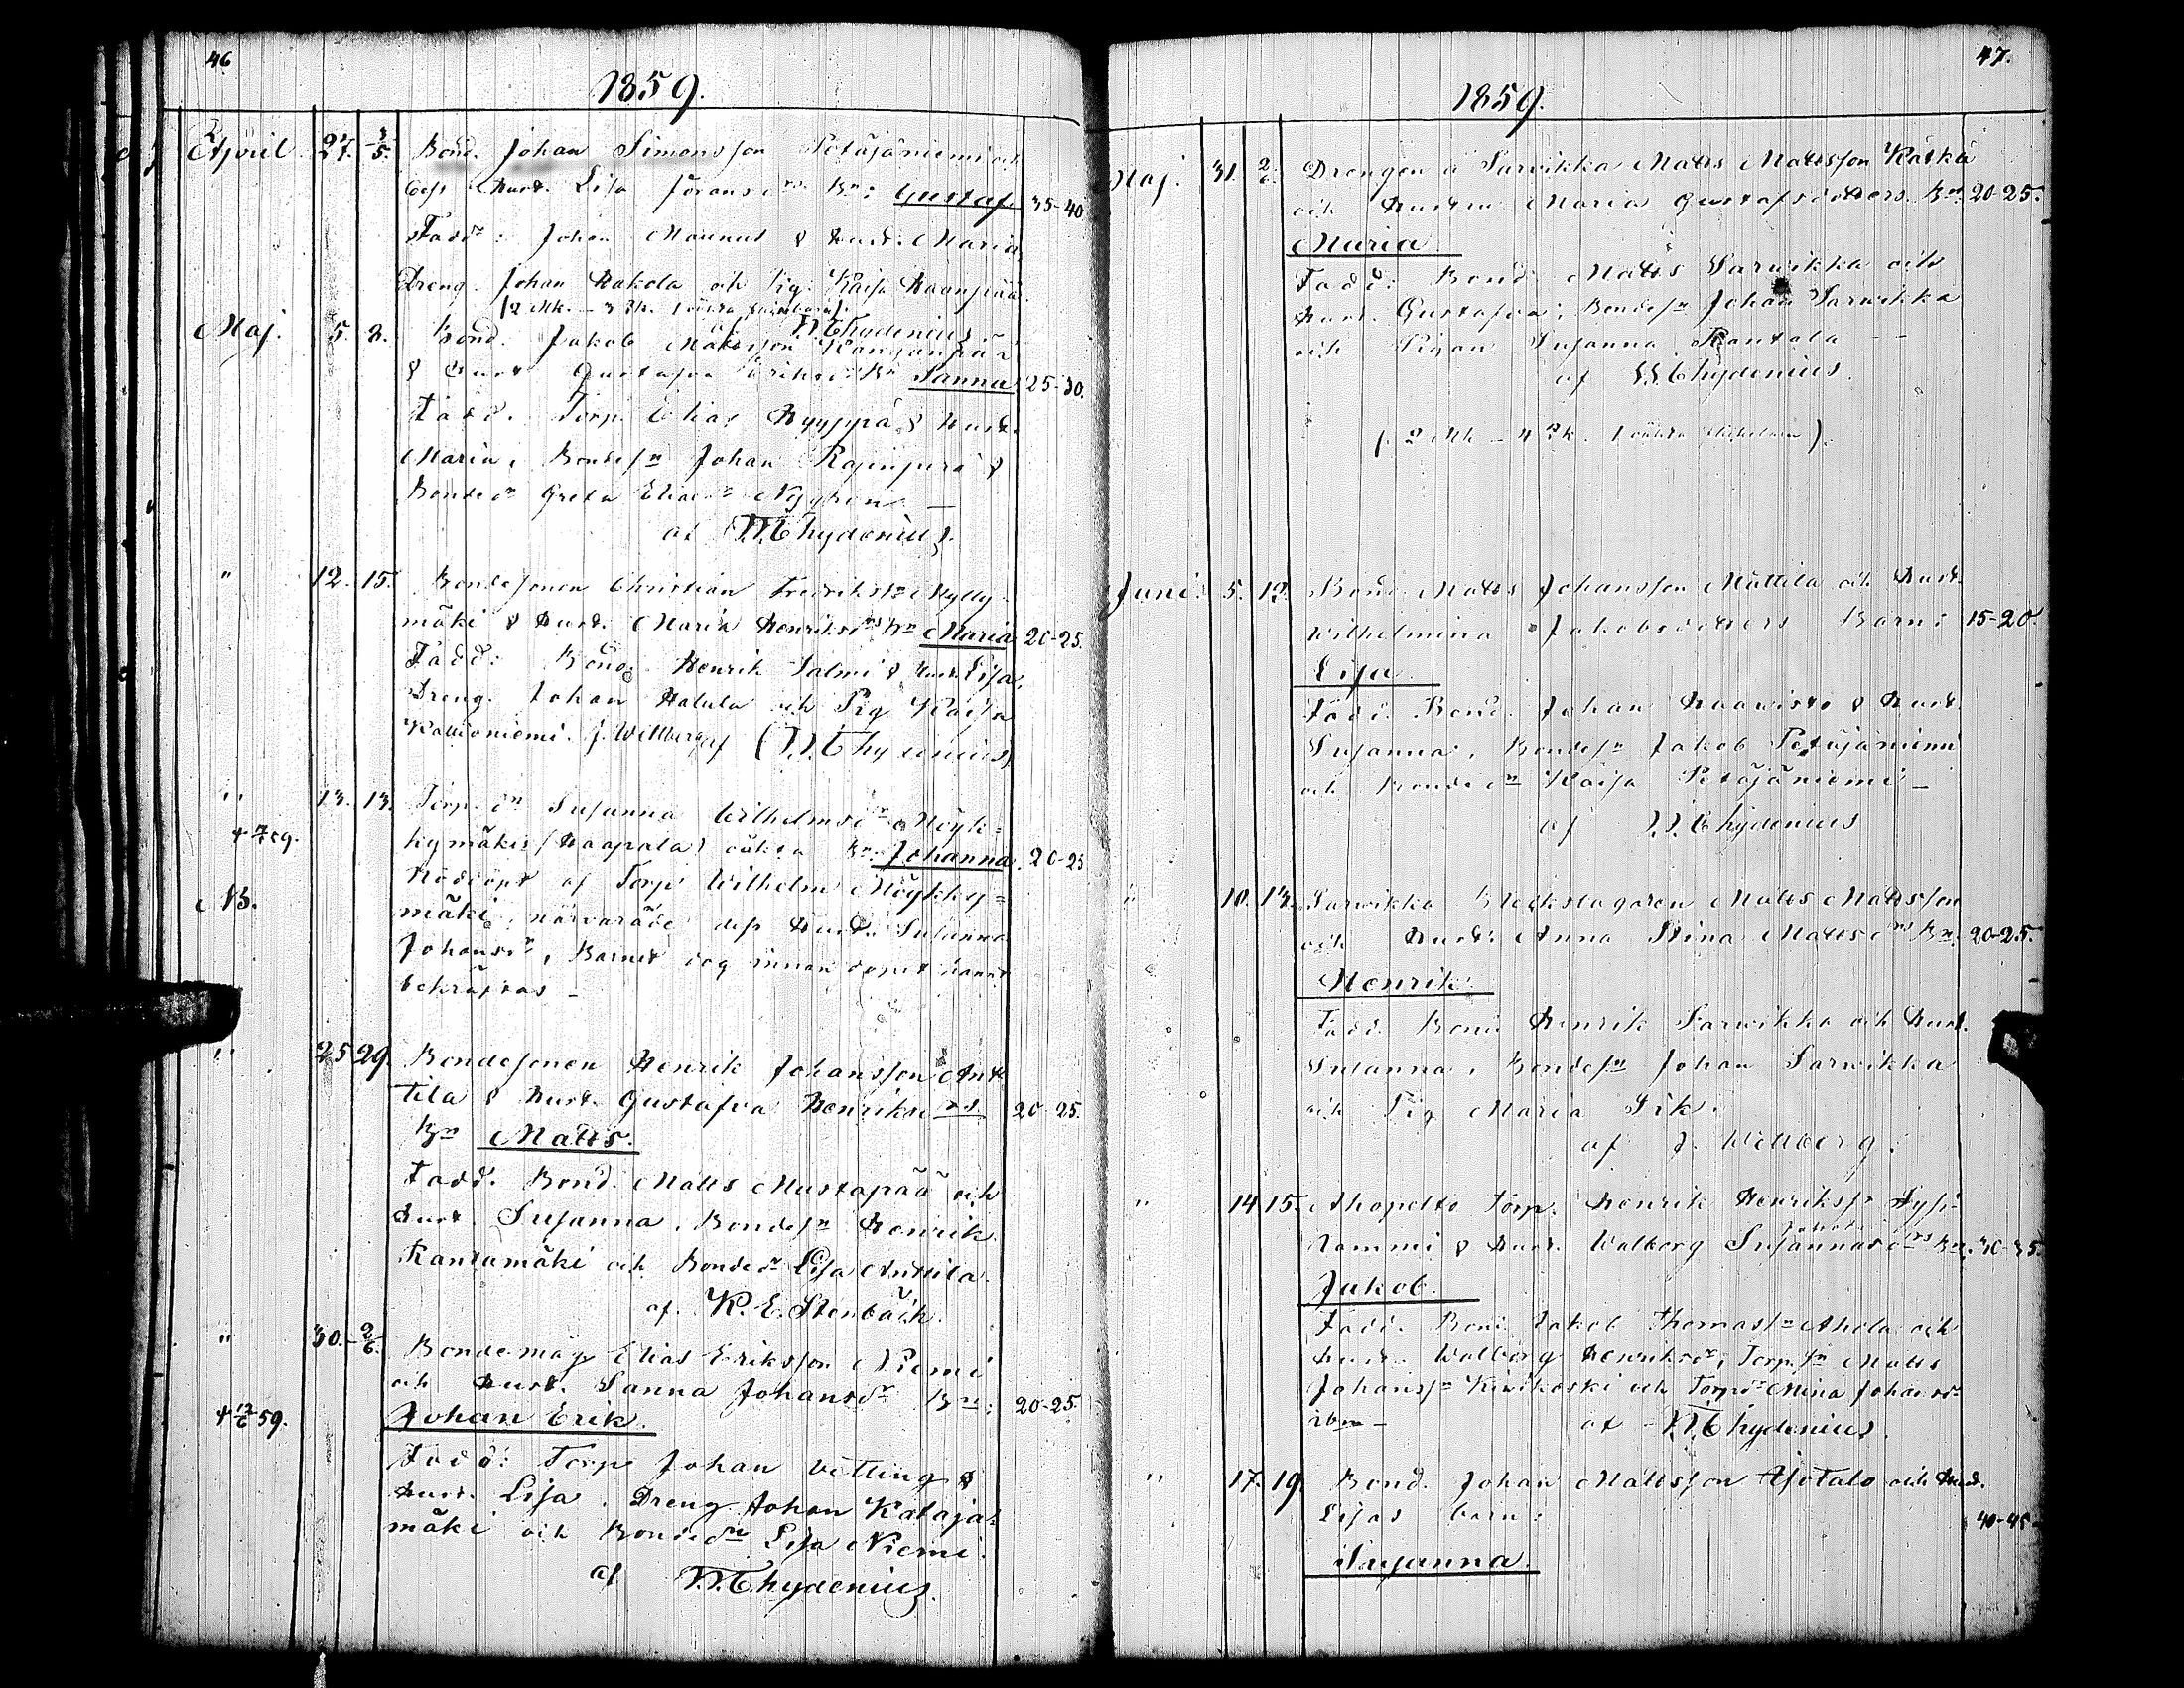 46
1859.
April 27. 1/5. Bond. Johan Simonsson Petäjäniemi och
dess Hust. Lisa Göransdrs Bn: Gustaf. 35-40
Fadd: Johan Maunus & Hust. Maria,
Dreng. Johan Hakola och Pig. Kaisa Haanpää
af W. Chydenius
Maj. 5. 8. Bond. Jakob Mattsson Kanganpää
& Hust Gustafva Eriksdrs Bn Sanna 25-30.
Fadd. Torp. Elias Hyyppä & Hust.
Maria, Bondesn Johan &
Bondedr Greta Eliaedr
af W. Chydenius.
" 12. 15. Bondesonen Christian Fredriksn Mylly-
mäki & Hust. Maria Henriksdrs Bn Maria 20-25.
Fadd: Bond. Henrik Salmi & Hust. Lisa,
Dreng. Johan Hatula och Pig. Kaisa
J. Wellberg af (W. Chydenius)
" 13. 13. Torp. dr Susanna Wilhelmsdr Möyk-
† 7/7 59. kymäkis (Haapala) oäkta Bn: Johanna. 20-25
NB. Nöddöpt af Torp Wilhelm Möykky-
mäki, närvarade dess Hust. Susanna
Johansdr, Barnet dog innan dopet hann
bekräftas –
" 25 29. Bondesonen Henrik Johansson Ant
tila & Hust. Gustafva Henriksdrs 20-25.
Bn Matts.
Fadd. Bond. Matts Mustapää och
Hust. Susanna, Bondesn Henrik
Rantamäki och Bondedr Lisa Anttila
af K. E. Stenbäck.
" 30. 2/6. Bondemåg Elias Eriksson Niemi
och Hust. Sanna Johansdrs Bn: 20-25.
† 12/6 59. Johan Erik.
Fadd: Torp Johan Vetting &
Hust. Lisa. Dreng. Johan Kataja-
mäki och Bondedr Lisa Niemi.
af W. Chydenius.
47.
1859.
Maj. 31. 2/6. Drengen å Sarvikka Matts Mattsson Kätkä
och Hustru Maria Gustafsdotters Bn. 20-25.
Maria
Fadd: Bond. Matts Sarvikka och
Hust. Gustafva; Bondesn Johan Sarvikka
och Pigan Susanna Rantala –
af W. Chydenius.
Juni 5. 12. Bond. Matts Johansson Mättila och Hust.
Wilhelmina Jakobsdotters Barn: 15-20.
Lisa
Fadd. Bond. Johan Haavisto & Hust.
Susanna, Bondesn Jakob Petäjäniemi
och Bondedr Kaisa Petäjäniemi –
af W. Chydenius
" 10. 13. Sarvikka Bleckslagaren Matts Mattsson
och Hust. Anna Stina Mattsdrs Bn. 20-25.
Henrik.
Fadd. Bond Henrik Sarvikka och Hust.
Susanna, Bondesn Johan Sarvikka
och Pig Maria Sik.
af J. Wellberg.
" 14 15. Ahopelto Torp. Henrik Henrikssn Sysi-
Jakobs
lammi & Hust. Walborg Susannasdrs Bn. 30-35
Jakob.
Fadd. Bond Jakob Thomassn Ahola och
Hust. Walborg Henriksdr, Torp. sn Matts
Johanssn Kivikoski och Torpdr Mina Johansdr
ibm – af W. Chydenius.
" 17. 19. Bond. Johan Mattsson Ajotalo och Hust.
Lisas barn: 40-45
Susanna.